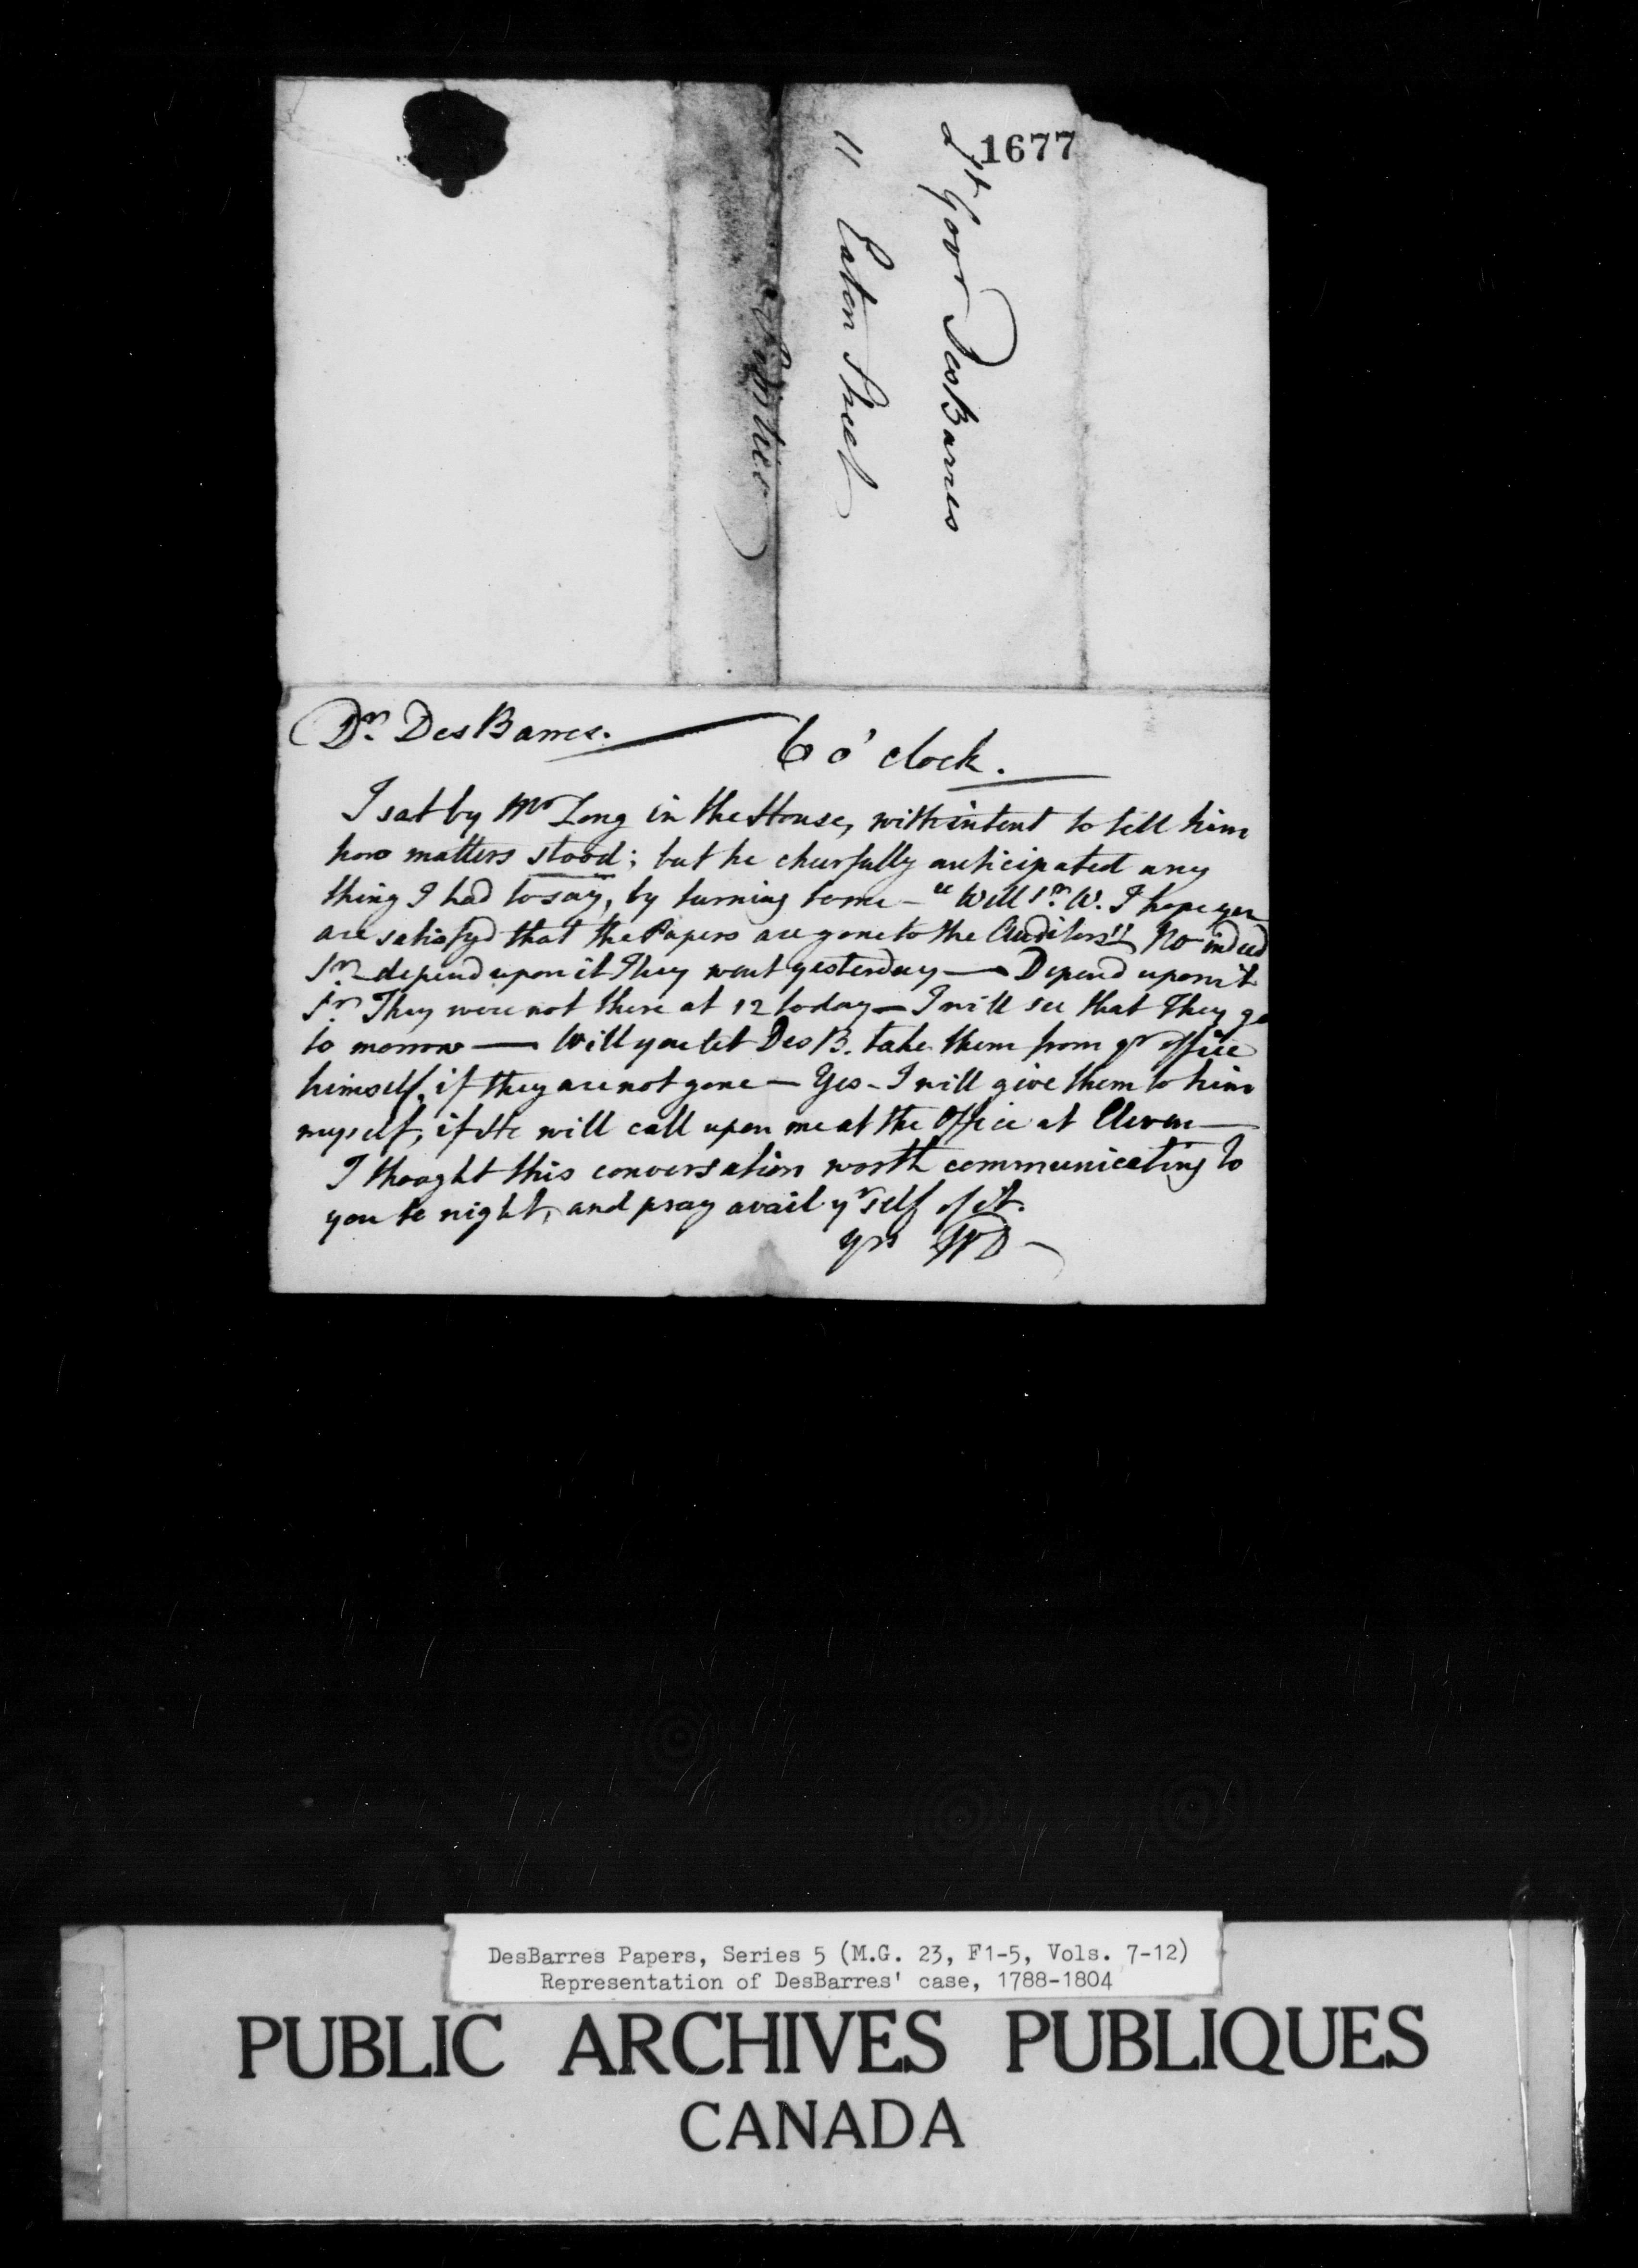 1677
Lt Govr DesBarres
11 Eaton Street
Pimlico
Dr. DesBarres.
6 o'clock.
I sat by Mr Long in the House, with intent to tell him
how matters stood; but he chearfully anticipated any
thing I had to say, by turning to me - "Well Sr. W. I hope you
are satisfyd that the Papers are gone to the Auditors" No indeed
Sr. - depend upon it They went yesterday — Depend upon it
Sr. They were not there at 12 today — I will see that They go
to morrow — Will you let Des B. take them from yr office
himself, if they are not gone — Yes - I will give them to him
myself, if He will call upon me at the Office at Eleven —
I thought this conversation worth communicating to
you to night, and pray avail yrself of it.
yrs WD -
DesBarres Papers, Series 5 (M.G. 23, F1-5, Vols. 7-12)
Representation of DesBarres' case, 1788-1804
PUBLIC ARCHIVES PUBLIQUES
CANADA